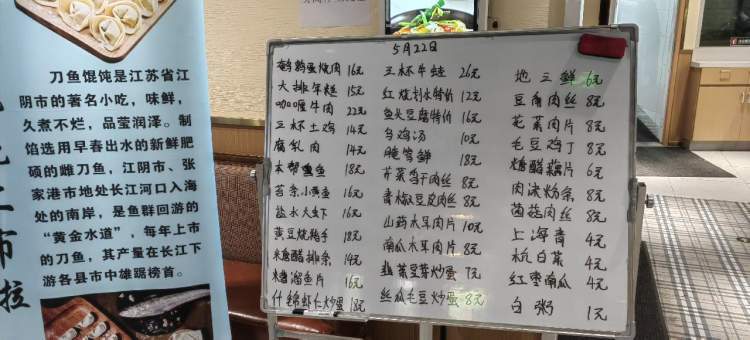 刀鱼馄饨是江苏省江
阴市的著名小吃，味鲜，
久煮不烂，品莹润泽。制
馅选用早春出水的新鲜肥
硕的雌刀鱼，江阴市、张
家港市地处长江河口入海
处的南岸，是鱼群回游的
“黄金水道”，每年上市
的刀鱼，其产量在长江下
游各县市中雄踞榜首。
5月22日
鹌鹑蛋烧肉 16元
大排年糕 15元
咖喱牛肉 22元
三杯土鸡 14元
腐乳肉 14元
本帮鳝鱼 18元
苔条小黄鱼 16元
盐水大虾 16元
黄豆烧猪手 18元
糖醋排条 14元
糟溜鱼片 16元
什锦虾仁炒蛋 18元
三杯牛蛙 26元
红烧划水特价 12元
鱼头豆腐特价 16元
乌鸡汤 10元
腌笃鲜 18元
芹菜香干肉丝 8元
青椒豆皮肉丝 8元
山药木耳肉片 10元
南瓜木耳肉片 8元
韭黄豆芽炒蛋 7元
丝瓜毛豆炒蛋 8元
地三鲜 6元
豆角肉丝 8元
花菜肉片 8元
毛豆鸡丁 8元
糖醋藕片 6元
肉沫粉条 8元
茵菇肉丝 8元
上海青 4元
杭白菜 4元
红枣南瓜 4元
白粥 1元